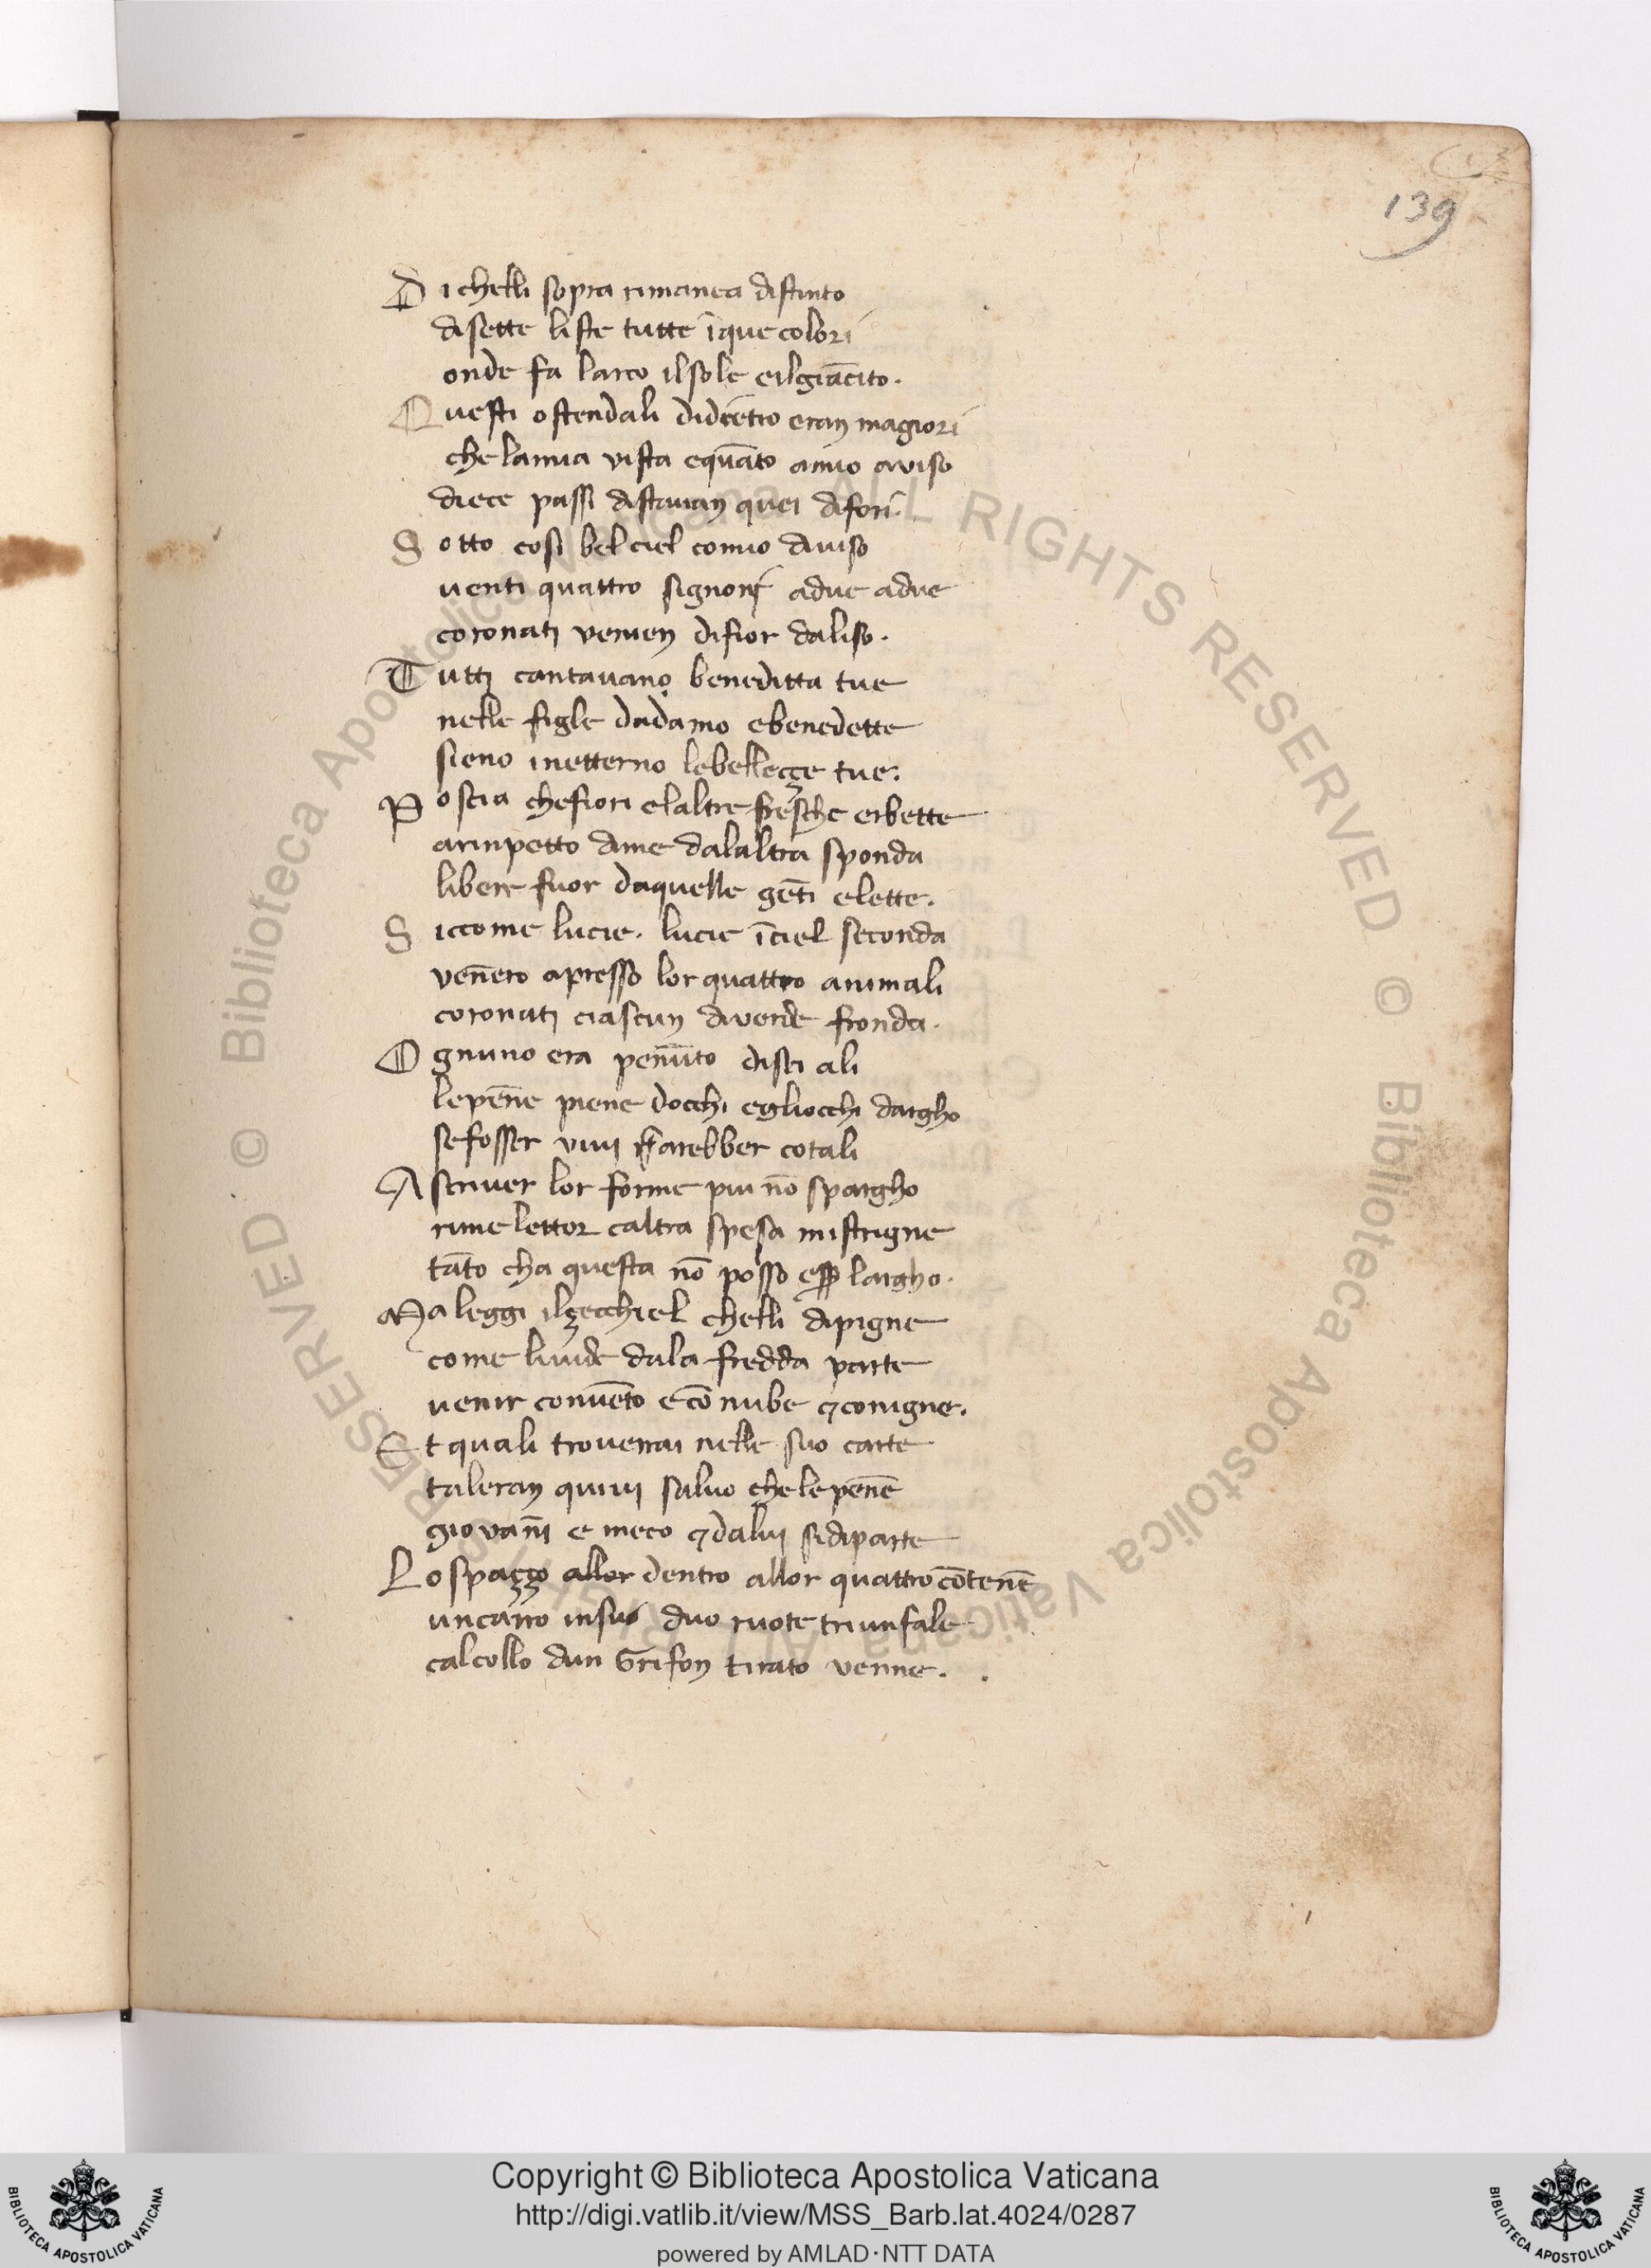 139
Di chelli sopra rimanea distinto
disette liste tutte īque colori
onde fa larco ilsole eilgiācīto.
Questi ostendali didrētro eran magiori
che lamia vista equāto amio aviso
diece passi distavan quei difori.
Sotto cosi bel ciel comio diviso
venti quattro signori adue adue
coronati venien difior daliso.
Tutti cantavano beneditta tue
nelle figle dadamo ebenedette
sieno inetterno lebelleçe tue.
Poscia chefiori elaltre fresche erbette
arinpetto dime dalaltra sponda
libere fuor daquelle gēti elette.
Siccome lucie. lucie īciel seconda
ven̄ero apresso lor quattro animali
coronati ciascun diverde fronda.
Ognuno era pen̄uto disei ali
lepen̄e piene docchi egliocchi dargho
sefosser vivi sarebber cotali
Ascriver lor forme piu nō spargho
rime lettor caltra spesa mistrigne
tāto cha questa nō posso eſſ largho.
Ma leggi ilçecchiel chelli dipigne
come livide dala fredda parte
venir convēto ecō nube ⁊ conigne.
Et quali troverrai nelle suo carte
taleran quivi salvo che lepen̄e
giovan̄i e meco ⁊ dalui sidiparte
Lo spaçço allor dentro allor quattro cōten̄e
uncarro insuo duo ruote triunfale
calcollo dun Grifon tirato venne.
Copyright © Biblioteca Apostolica Vaticana
http://digi.vatlib.it/view/MSS_Barb.lat.4024/0287
powered by AMLAD·NTT DATA
BIBLIOTECA APOSTOLICA VATICANA
BIBLIOTECA APOSTOLICA VATICANA
© Biblioteca Apostolica Vaticana ALL RIGHTS RESERVED © Biblioteca Apostolica Vaticana ALL RIGHTS RESERVED